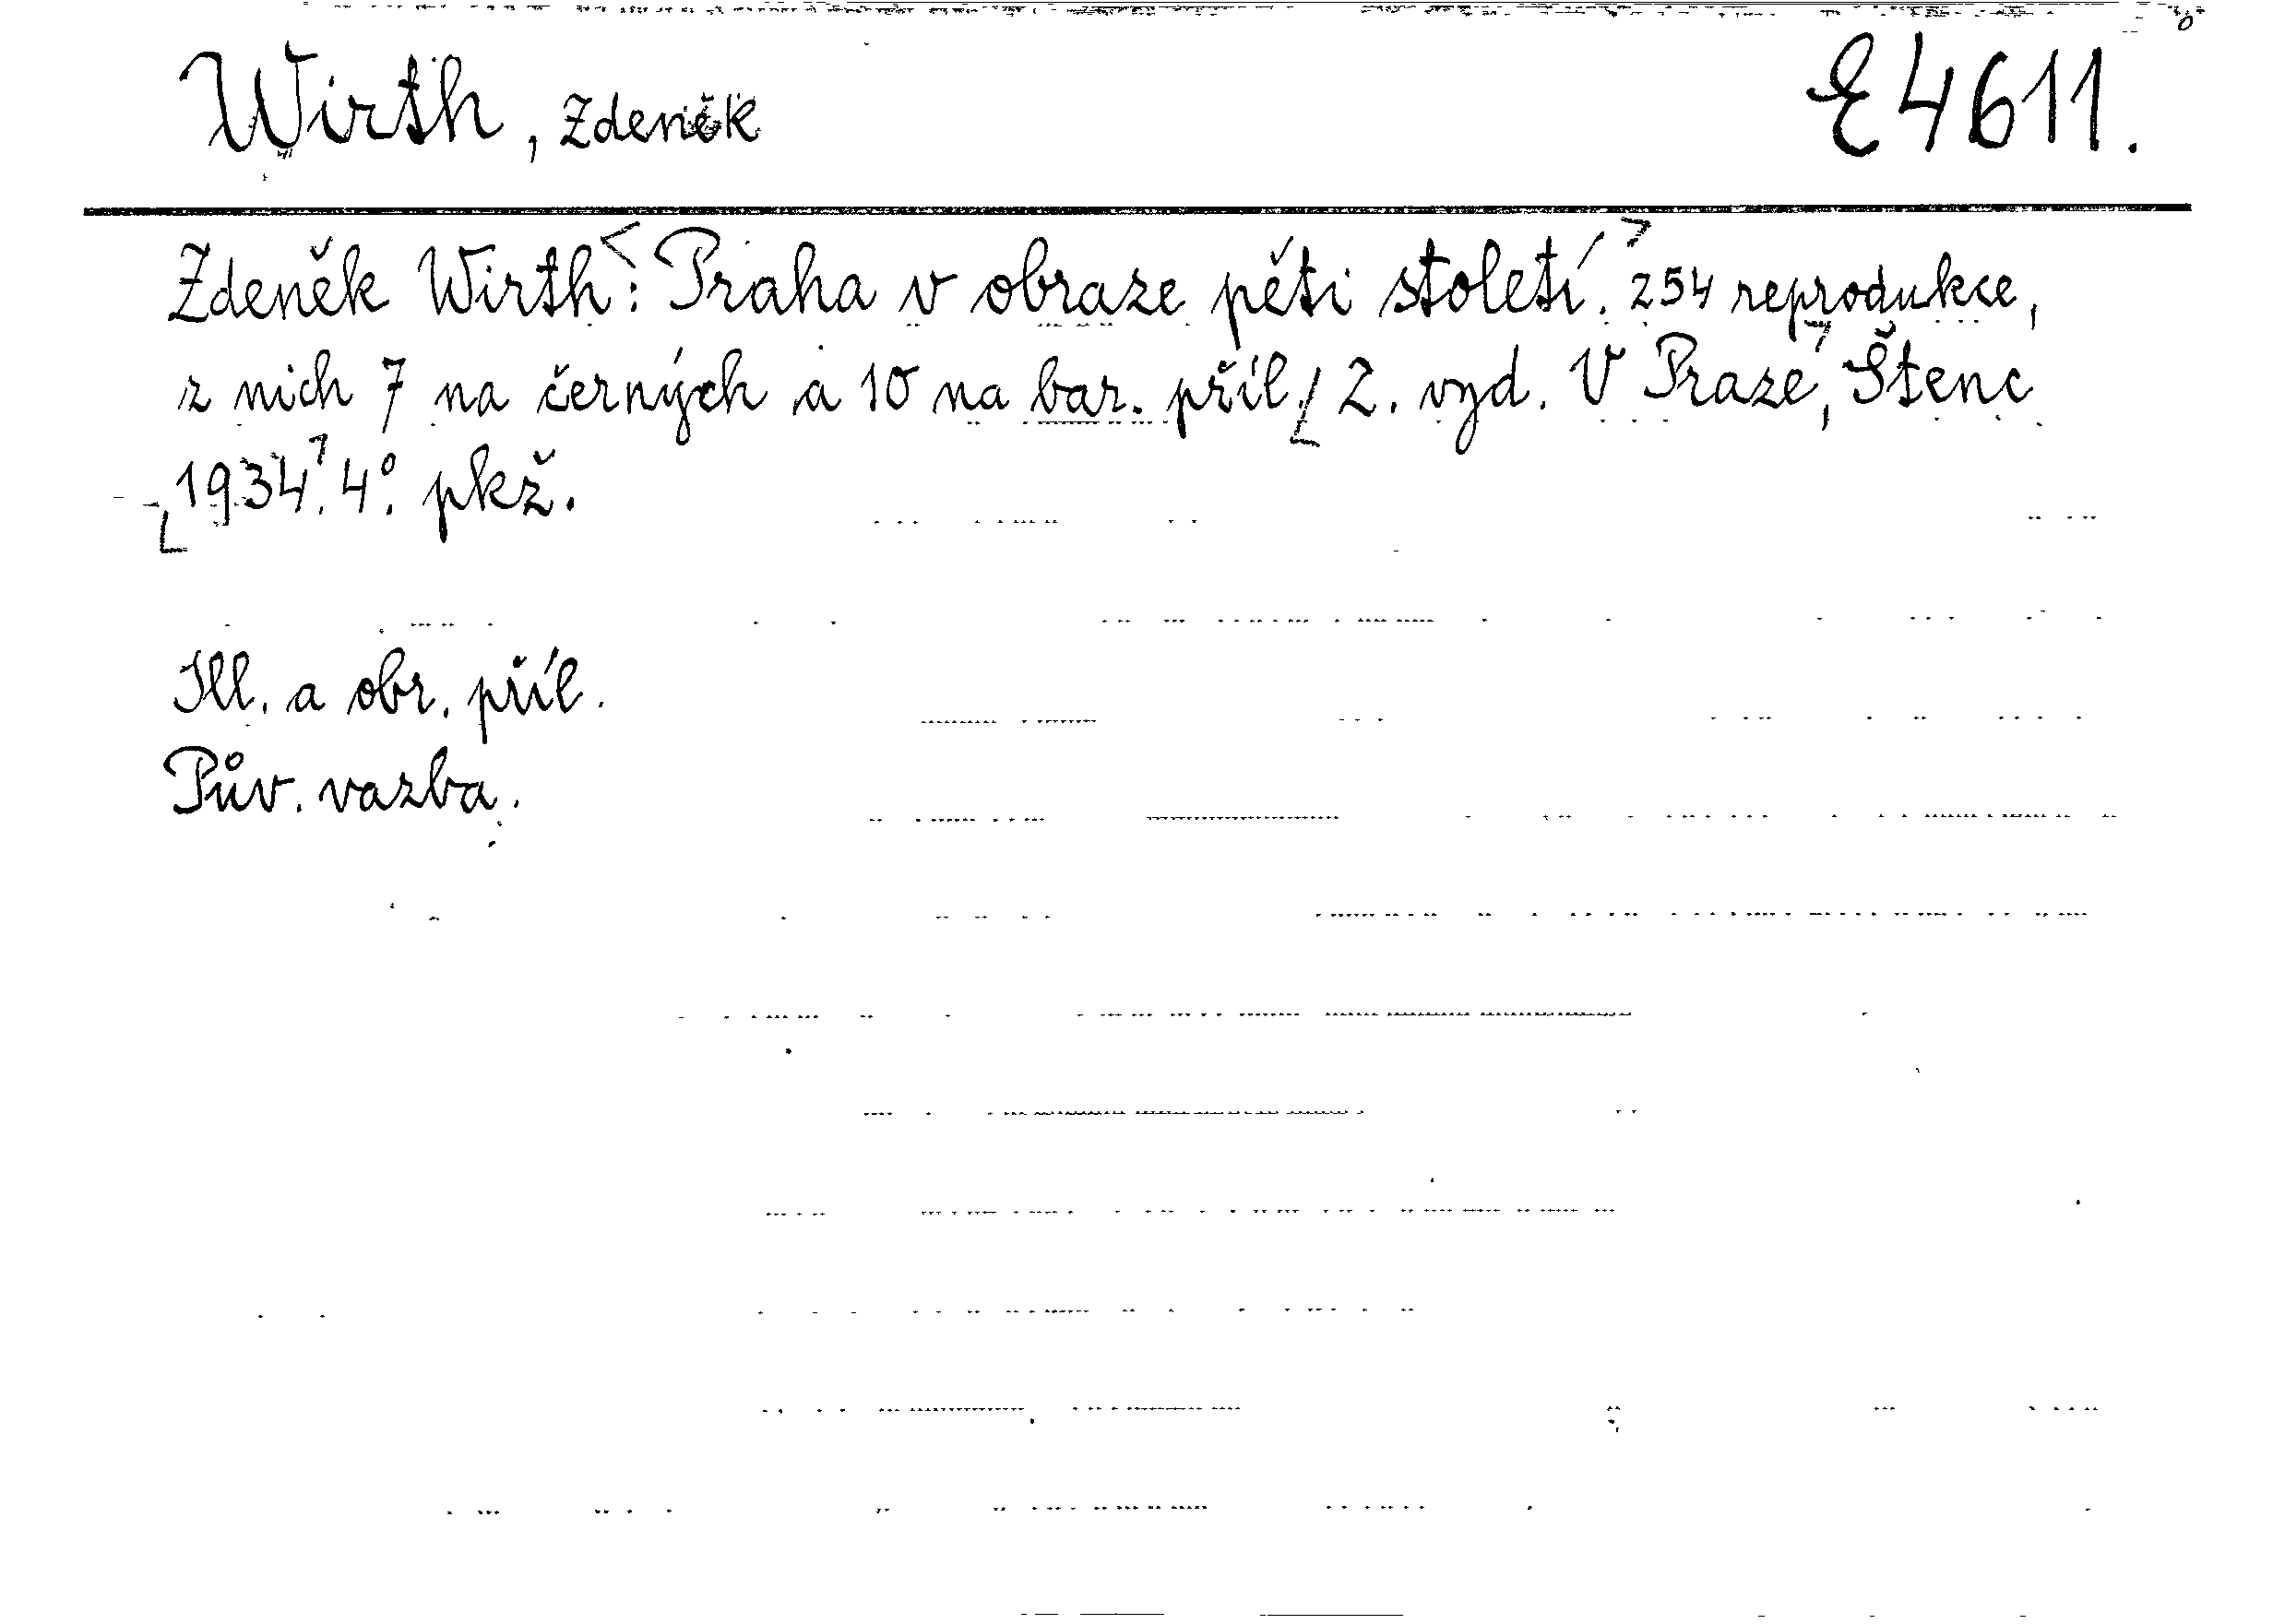 Wirth, Zdeněk E 4611.
Zdeněk Wirth: Praha v obraze pěti století. 254 reprodukce,
z nich 7 na černých a 10 na bar. příl. 2. vyd. V Praze, Štenc
1934. 4°. pkž.
Ill. a obr. příl.
Pův. vazba.